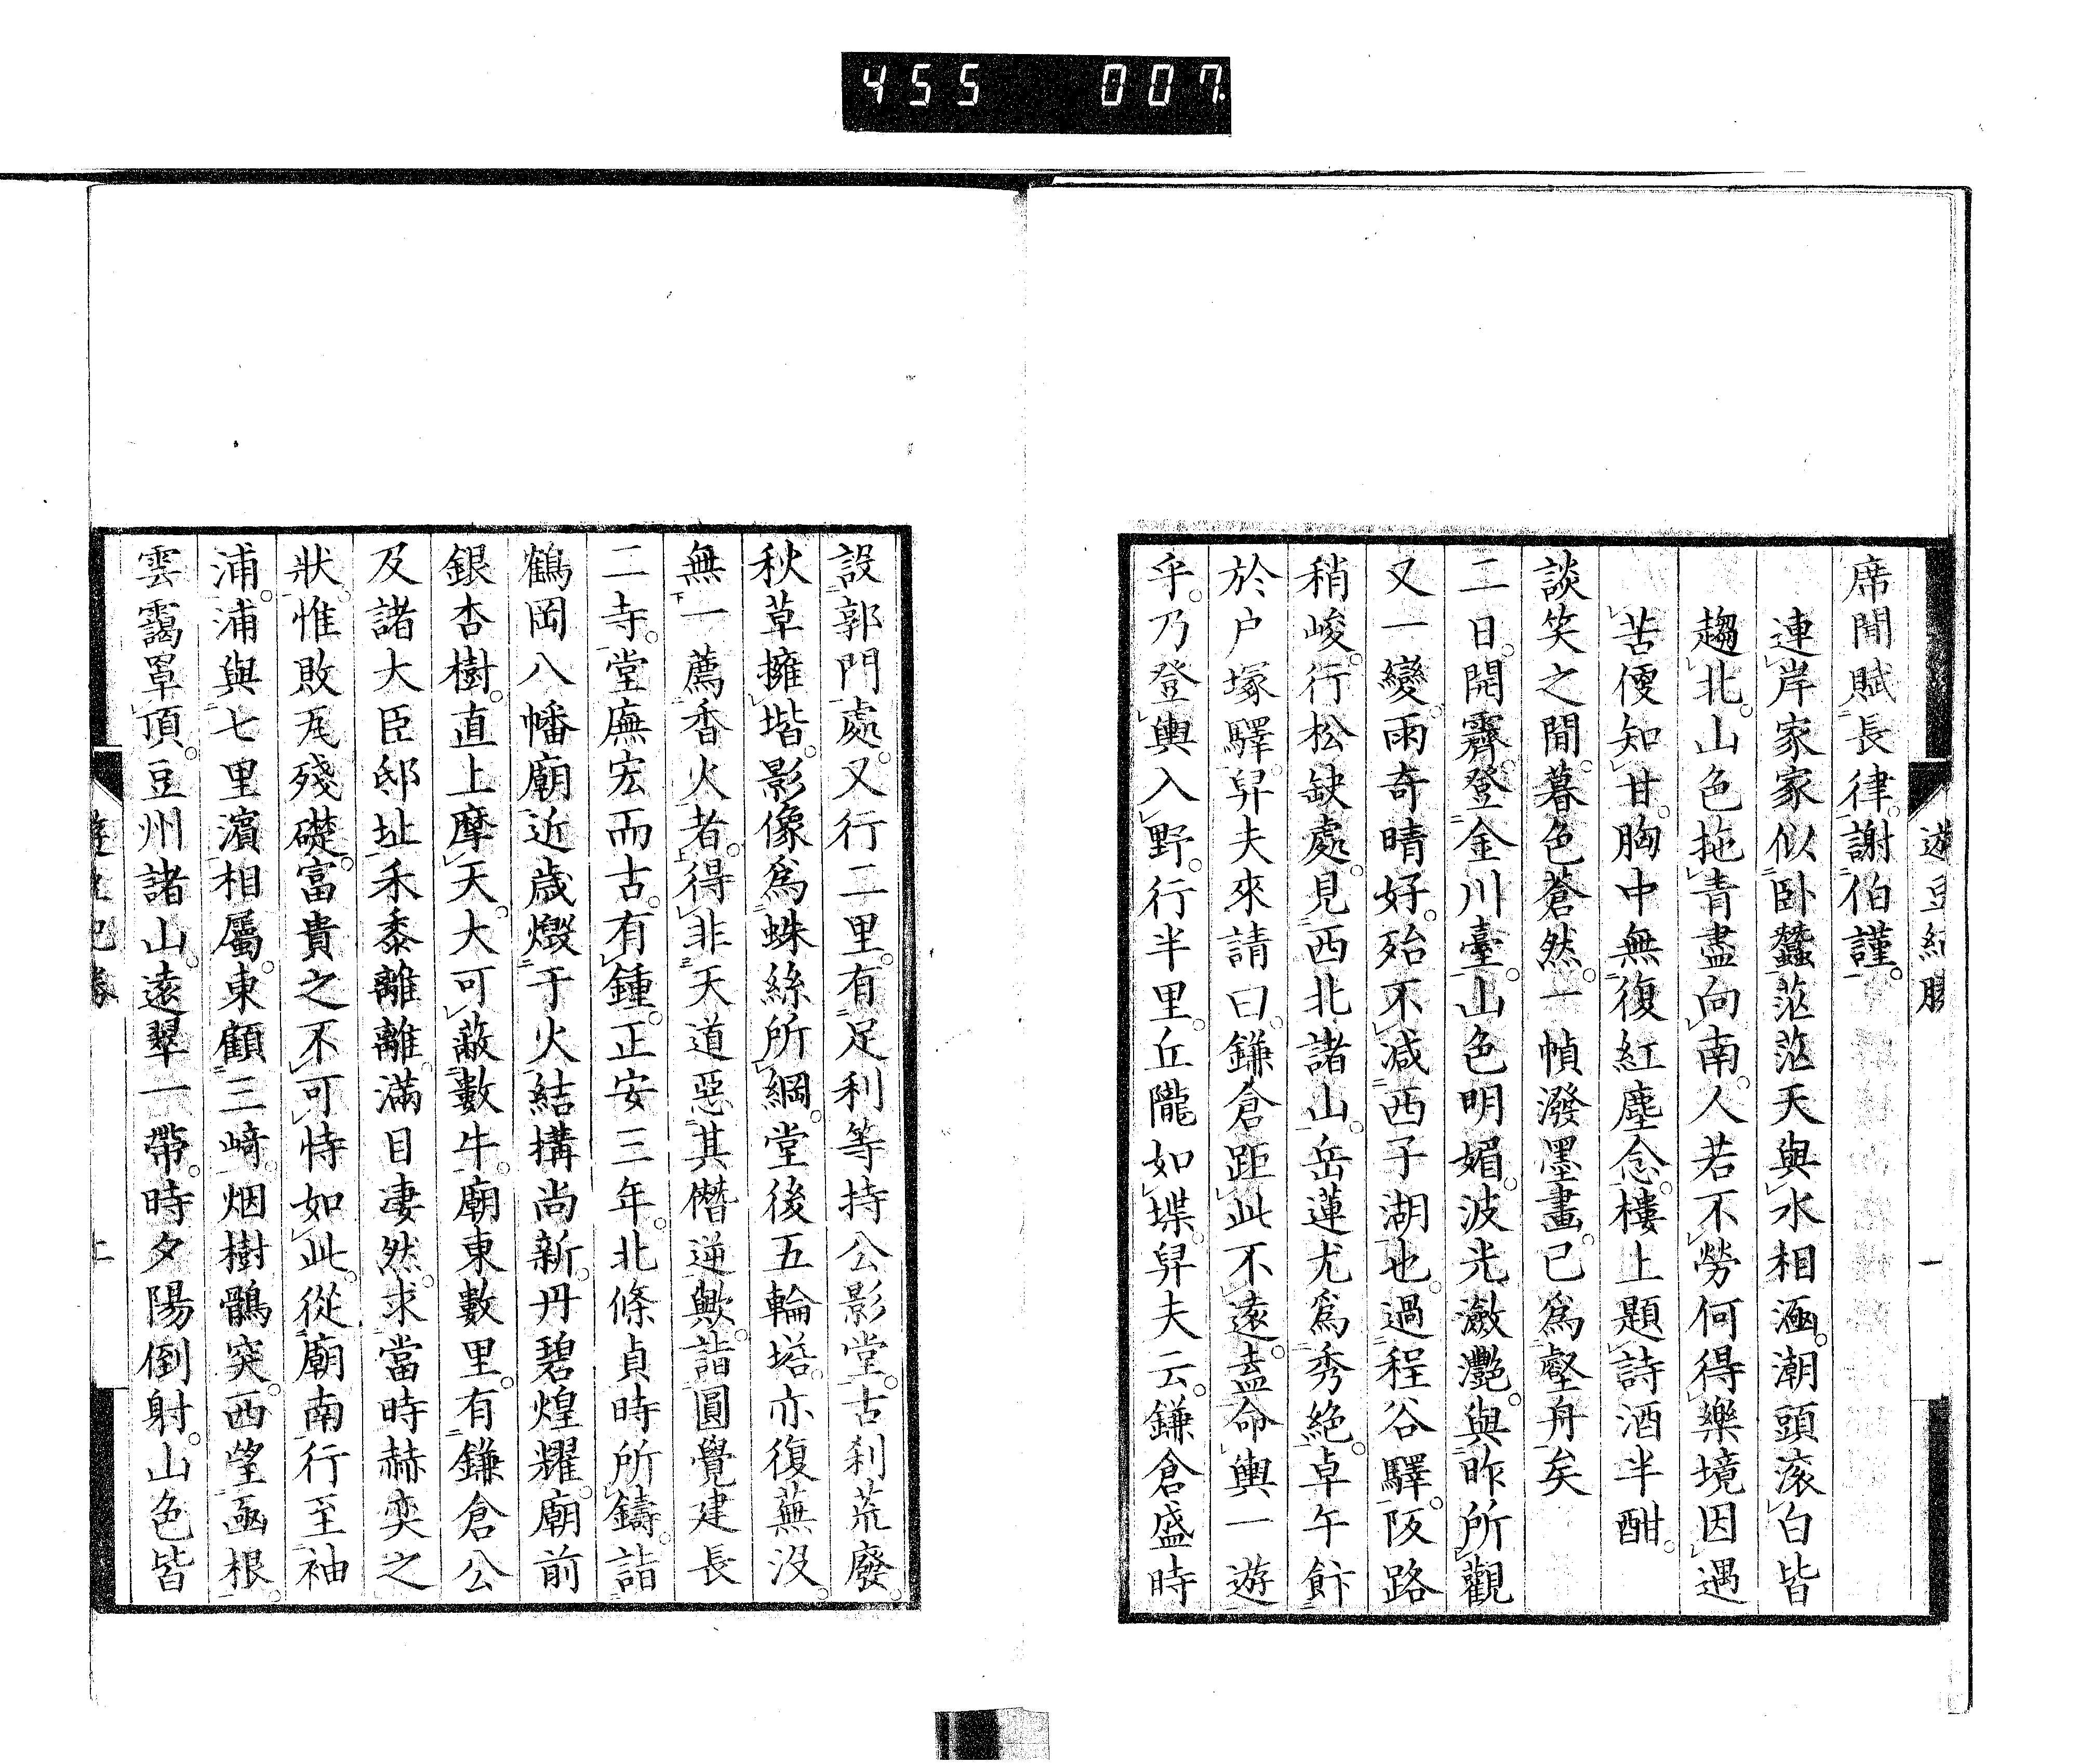 455 007
遊豆紀勝 一
席間賦長律。謝伯謹。
連岸家家似臥蠶茫茫天與水相涵。潮頭滾白皆
趨北。山色拖青盡向南。人若不勞何得樂境因遇
苦便知甘。胸中無復紅塵念。樓上題詩酒半酣。
談笑之間。暮色蒼然。一幀潑墨畫。已爲壑舟矣
二日。開霽。登金川臺。山色明媚。波光瀲灧。與昨所觀
又一變。雨奇晴好。殆不減西子湖也。過程谷驛。阪路
稍峻。行松缺處。見西北諸山。岳蓮尤爲秀絶。卓午飰
於戸塚驛。舁夫來請曰。鎌倉距此不遠。盍命輿一遊
乎。乃登輿入野。行半里。丘隴如堞。舁夫云。鎌倉盛時
設郭門處。又行二里。有足利等持公影堂。古刹荒廢。
秋草擁堦。影像爲蛛絲所綱。堂後五輪塔。亦復蕪没。
無一薦香火者。得非天道惡其僭逆歟。詣圓覺建長
二寺。堂廡宏而古。有鍾。正安三年。北條貞時所鑄。詣
鶴岡八幡廟近歳燬于火結搆尚新。丹碧煌耀。廟前
銀杏樹。直上摩天。大可蔽數牛。廟東數里。有鎌倉公
及諸大臣邸址禾黍離離。滿目凄然。求當時赫奕之
狀。惟敗瓦殘礎。富貴之不可恃如此。從廟南行至袖
浦。浦與七里濱相屬。東顧三﨑。烟樹鶻突。西望凾根。
雲靄罩頂。豆州諸山。遠翠一帶。時夕陽倒射。山色皆